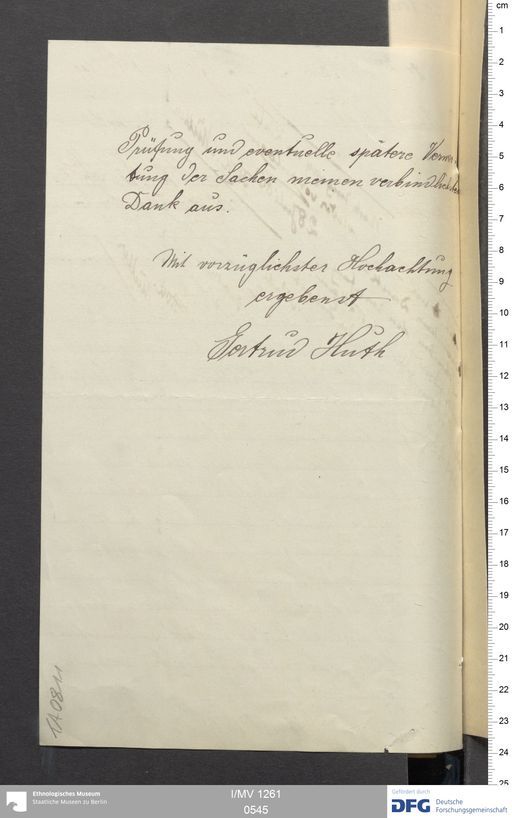 Prüfung und eventuelle spätere Verwer-
tung der Sachen meinen verbindlichsten
Dank aus.
Mit vorzüglichster Hochachtung
ergebenst
Gertrud Huth
cm
1
2
3
4
5
6
7
8
9
10
11
12
13
14
15
16
17
18
19
20
21
22
23
24
25
Ethnologisches Museum
Staatliche Museen zu Berlin
I/MV 1261
0545
Gefördert durch
DFG Deutsche
Forschungsgemeinschaft